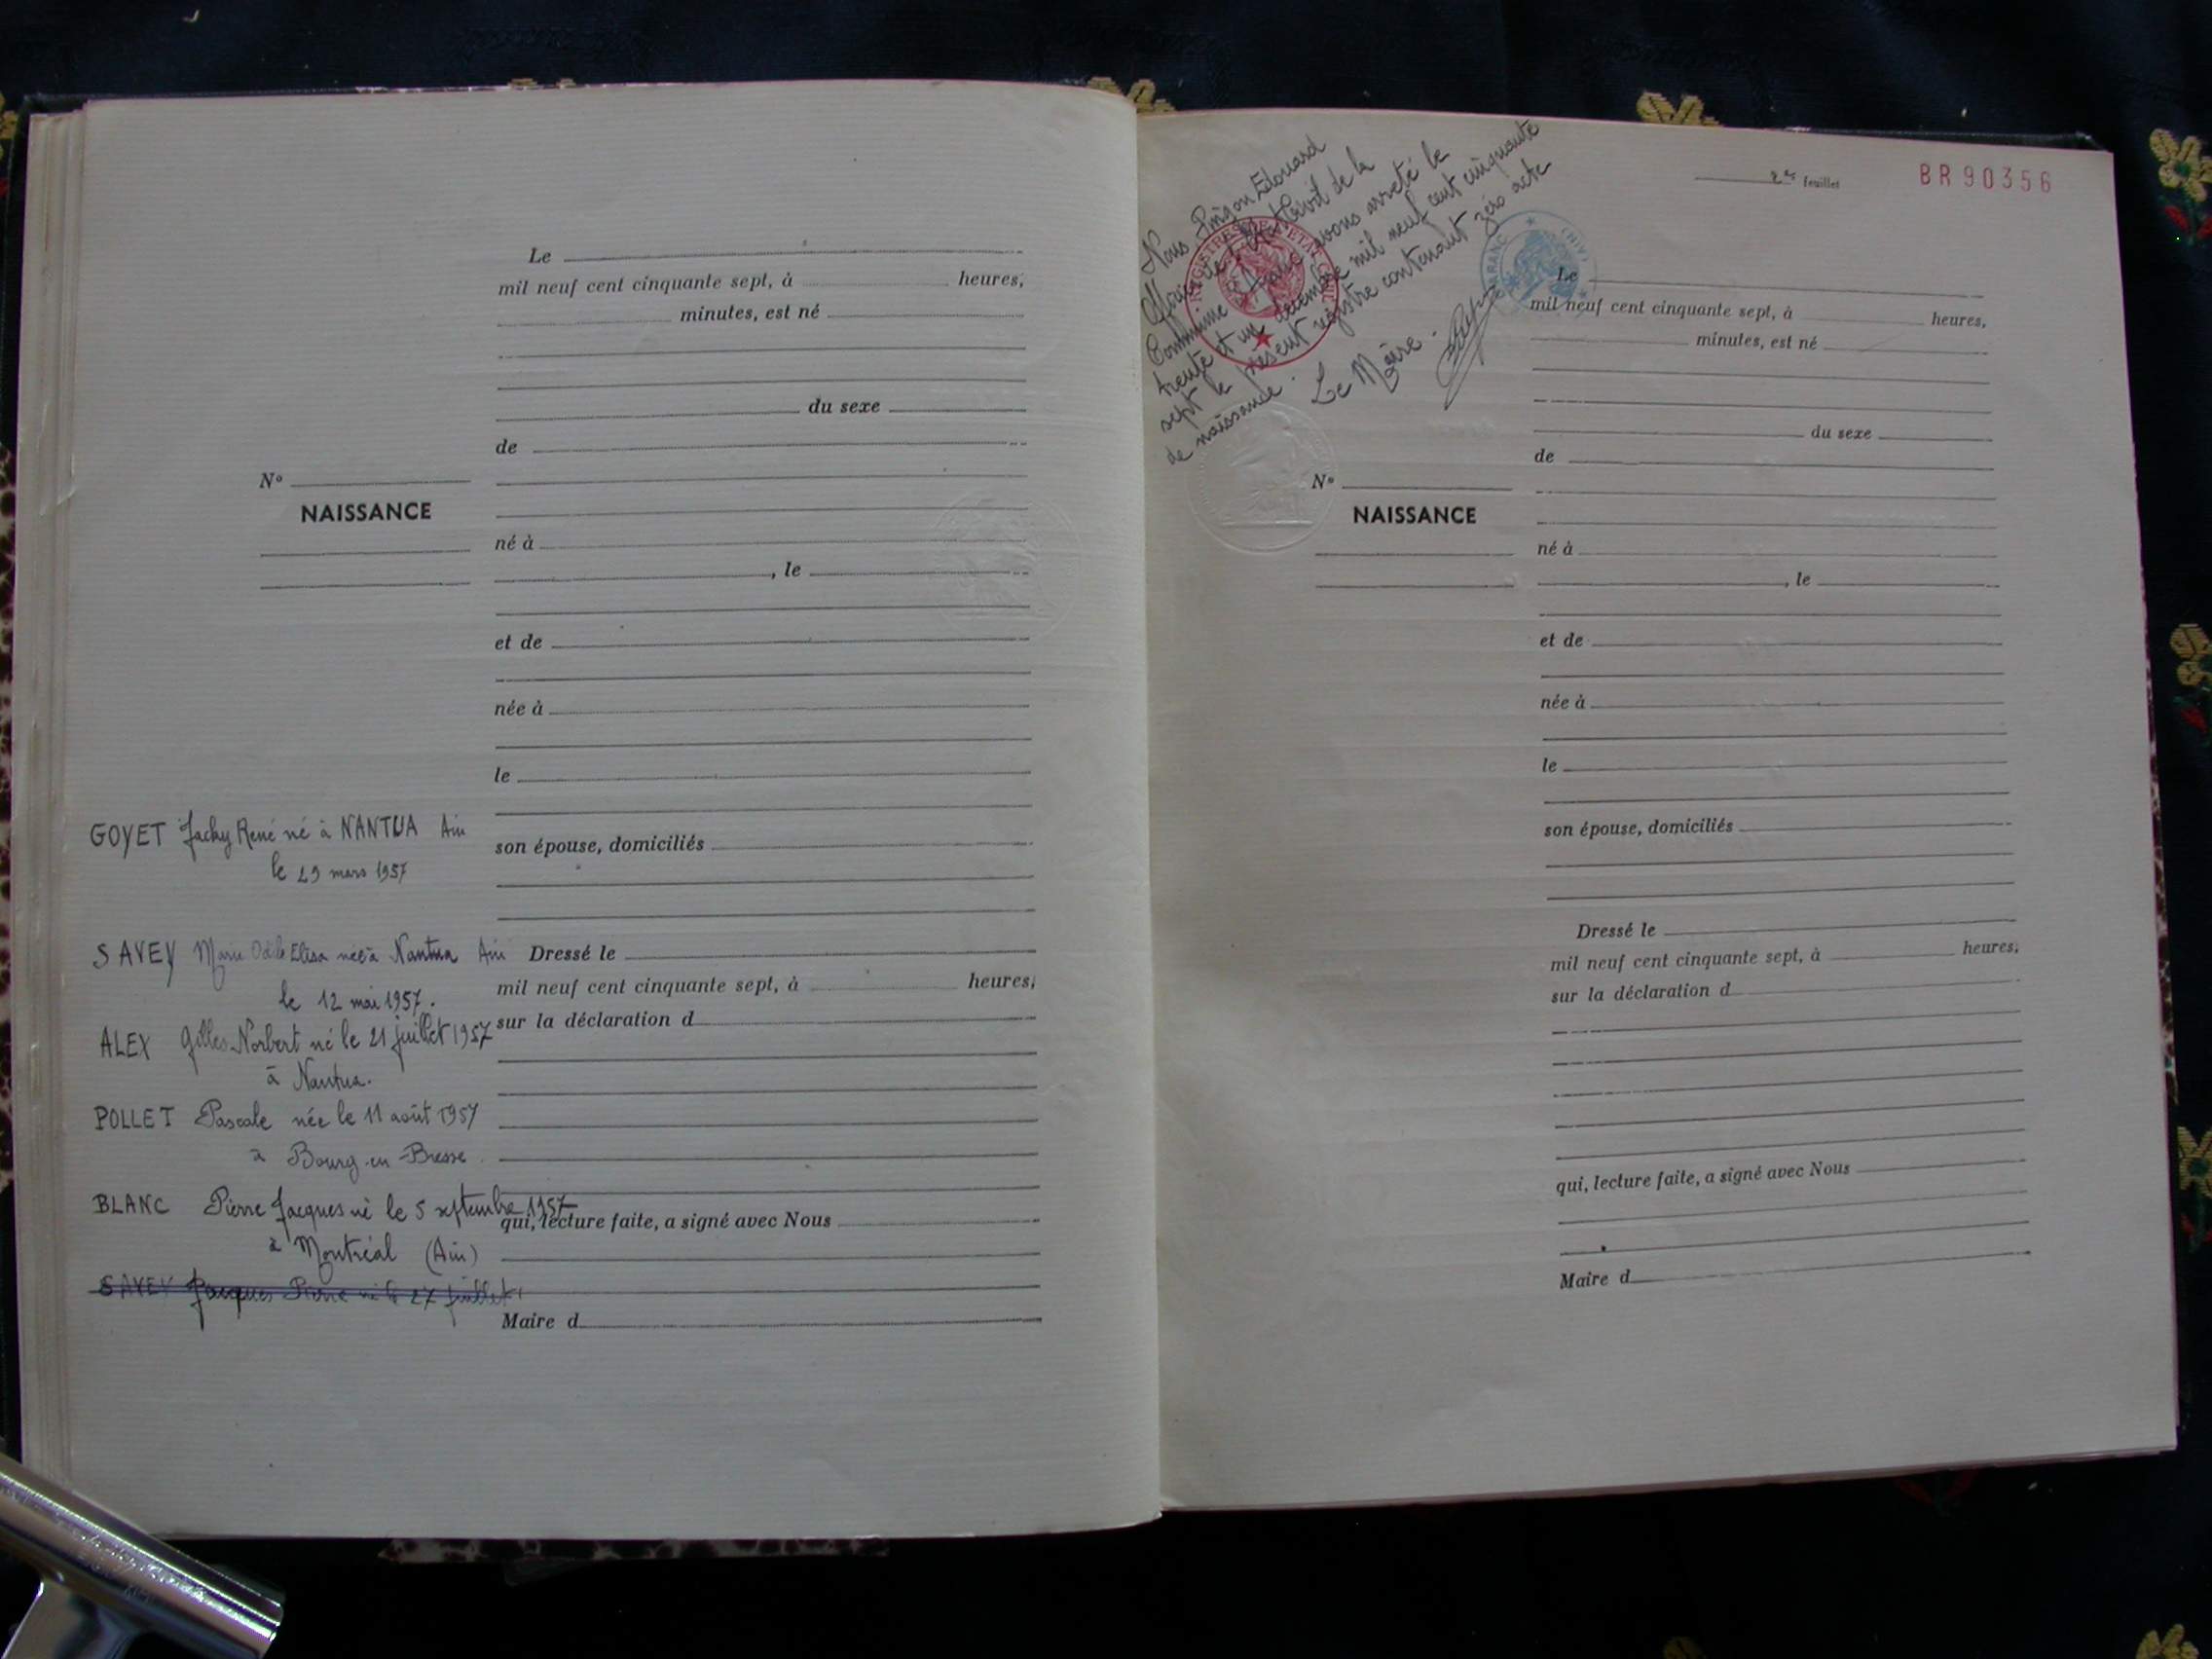 Le
mil neuf cent cinquante sept, à heures,
minutes, est né
du sexe
de
N°
NAISSANCE
né à
, le
et de
née à
le
GOYET Jacky René né à NANTUA Ain
le 29 mars 1957
son épouse, domiciliés
SAVEY Marie Odile Elisa née à Nantua Ain
le 12 mai 1957.
Dressé le
mil neuf cent cinquante sept, à heures,
sur la déclaration d
ALEX Gilles Norbert né le 21 juillet 1957
à Nantua.
POLLET Pascale née le 11 août 1957
à Bourg-en-Bresse.
BLANC Pierre Jacques né le 5 septembre 1957
à Montréal (Ain)
qui, lecture faite, a signé avec Nous
SAVEY Jacques Pierre né le 27 juillet
Maire d
Nous Edouard
Officier de l'Etat Civil de la
Commune avons arreté le
trente et un décembre mil neuf cent cinquante
sept le présent registre contenant zéro acte
de naissance. Le Maire.
feuillet
BR90356
Le
mil neuf cent cinquante sept, à heures,
minutes, est né
du sexe
de
N°
NAISSANCE
né à
, le
et de
née à
le
son épouse, domiciliés
Dressé le
mil neuf cent cinquante sept, à heures,
sur la déclaration d
qui, lecture faite, a signé avec Nous
Maire d